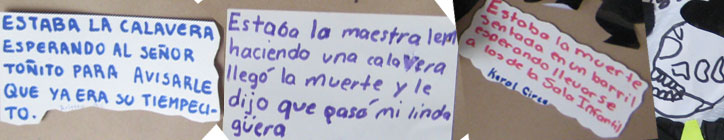 ESTABA LA CALAVERA
ESPERANDO AL SEÑOR
TOÑITO PARA AVISARLE
QUE YA ERA SU TIEMPECI-
TO.
Estaba la maestra lem
haciendo una calavera
llegó la muerte y le
dijo que pasó mi linda
güera
Estaba la muerte
sentada en un barril
esperando llevarse
a los de la Sala Infantil
Karol Cirse